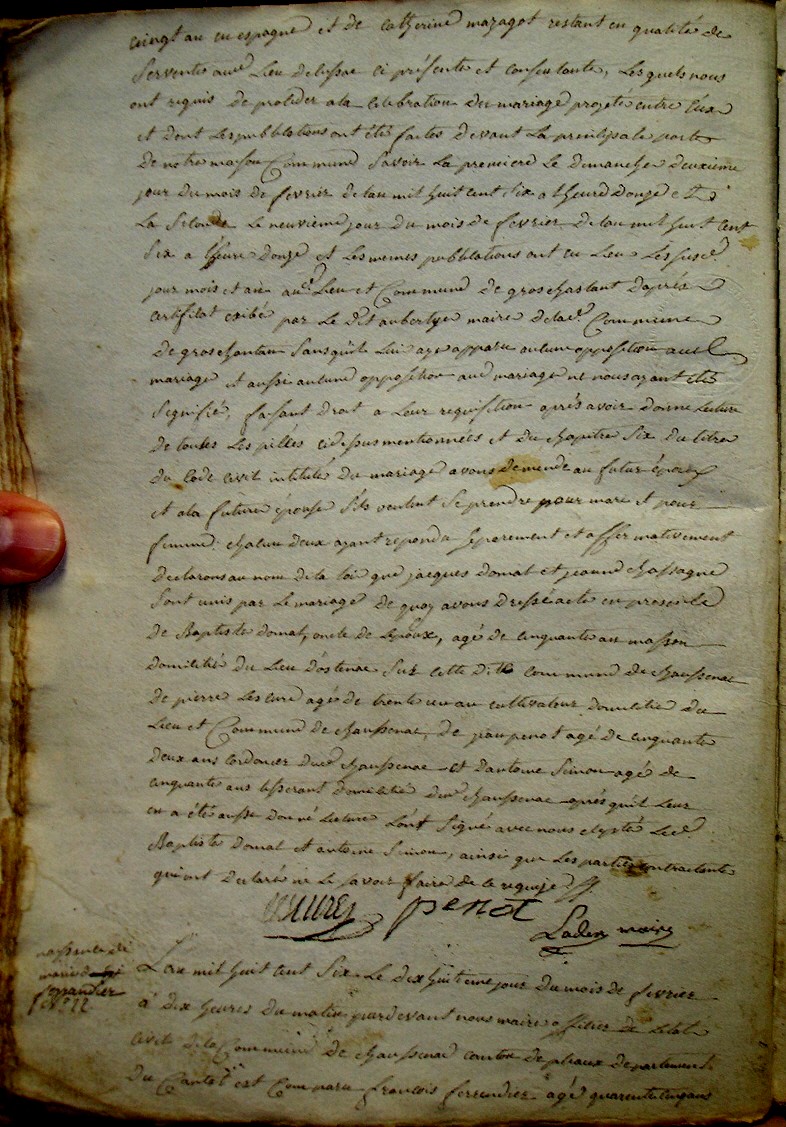 vingt an en espagne et de Catherine mazagot restant en qualité de
Servente au Lieu de lissac ci présente et consentante, Lesquels nous
ont requis de proséder a la Celebration du mariage projeté entre Eux
et dont Les publications ont étés faites devant La principale porte
De notre maison Commune Savoir La premiere Le dimanche deuxieme
jour du mois de fevrier de lan mil huit cent Six a lheure donze et
La Seconde Le neuvieme jour du mois de fevrier de lan mil huit cent
Six a lheure donze et Les memes publications ont eu Lieu Les susd.
jour mois et an aud. Lieu et Commune De groschastant daprés
Certifilat exibé par Le Dt aubertye maire delad. Commune
De groschantan Sans quil Lui aye apparu aucune opposition aud
mariage et aussi aucune opposition aud mariage ne nous ayant étés
Signifié, faisant droit a Leur requisition aprés avoir donne Lecture
De toutes Les pilles cidessus mentionneés et du chapitre Six du titre
Du Code civil intitulé Du mariage avons demende au futur époux
et a la future épouse Sils veulent Se prendre pour mari et pour
femme. chalun deux ayant repondu Separement et affirmativement
Declarons au nom de la loi que jacques domat et jeanne chassagne
Sont unis par Le mariage De quoy avons Dressé acte en presence
De Baptiste domat, oncle de Lepoux, agé de cinquante ans masson
domicilié du Lieu dostenac Sur cette dite Commune de chaussenac
De pierre Lescure agé de trente un an cultivateur domicilié du
Lieu et Commune de chaussenac, De jean penot agé de cinquante
Deux ans Cordonier dud chaussenac et dantoine Simon agé de
cinquante ans tisserant domicilié dud chaussenac aprés quil Leur
en a été aussi donné Lecture Lont Signé avec nous exsepté Led.
Baptiste Domat et antoine Simon, ainsi que Les parties contractente
qui ont declaré ne Le savoir faire de ce requis
Lescure penot
Laden maire
nassence de
marie
ferrandier
n° 22
Lan mil huit cent Six Le dix huitieme jour du mois de fevrier
à dix heures du matin pardevant nous maire officier de Letat
civil de la Commune De chaussenac canton de pleaux departement
Du Cantal est Comparu françois ferrendier agé quarente cinq ans